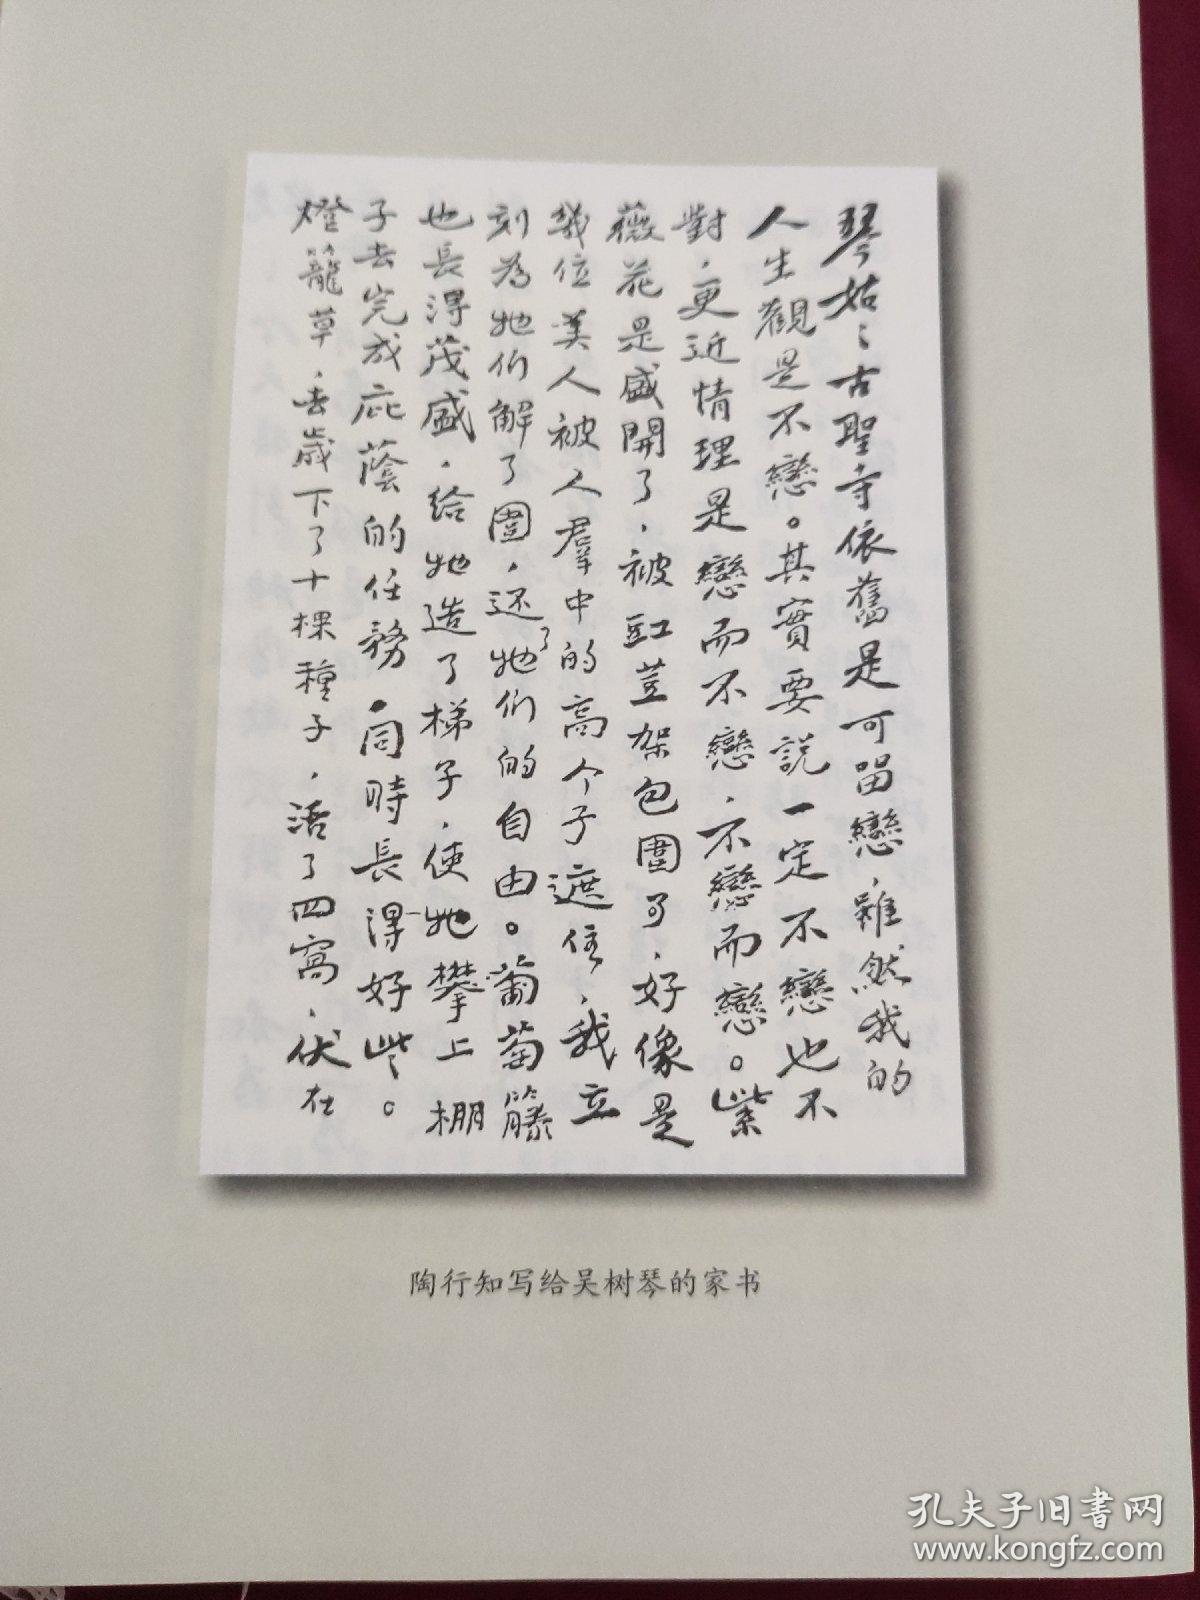 琴姑：古聖寺依舊是可留戀，雖然我的
人生觀是不戀。其實要説一定不戀也不
對，更近情理是戀而不戀，不戀而戀。紫
薇花是盛開了，被豇荳架包圍了，好像是
幾位美人被人羣中的高个子遮住，我立
刻為她们解了圍，还了她们的自由。葡萄籐
也長得茂盛，给她造了梯子，使她攀上棚
子去完成庇蔭的任務，同時長得好些。
燈籠草，去歲下了十棵種子，活了四窩，伏在
陶行知写给吴树琴的家书
孔夫子旧书网
www.kongfz.com